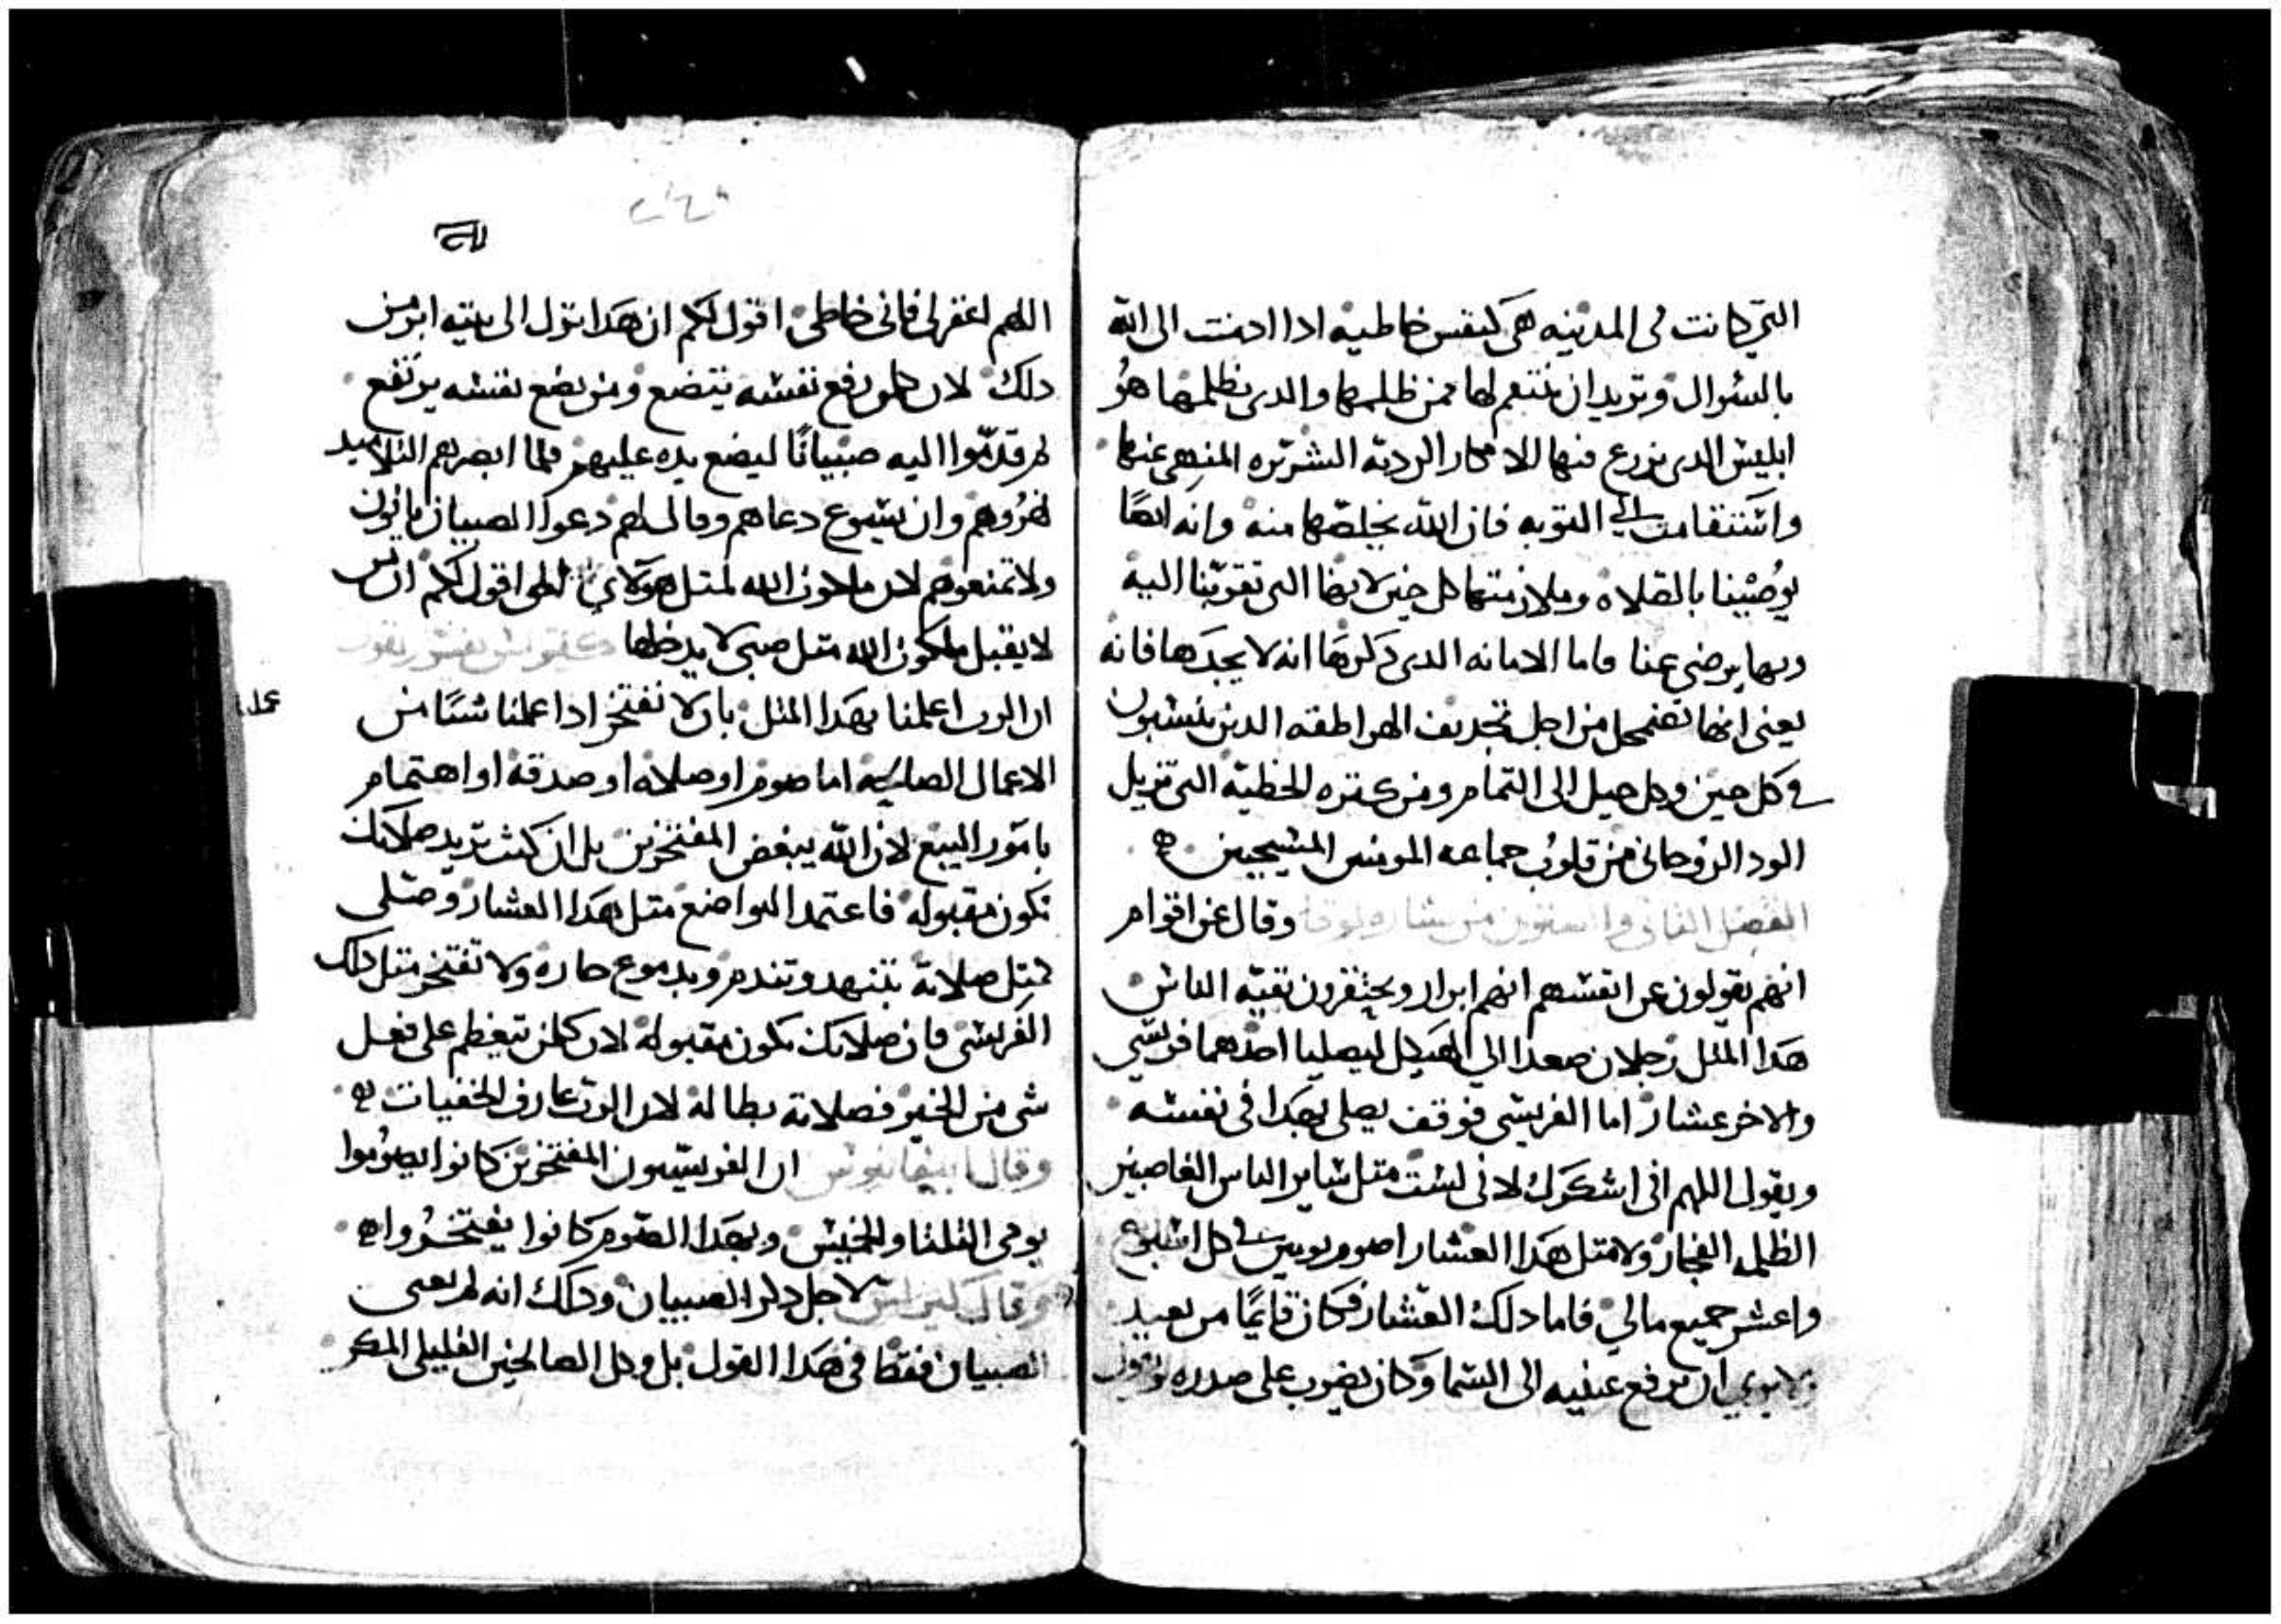 التي كانت في المدينه هي كنفس خاطيه ادا ادمنت الى الله
بالسوال وتريد ان ينتقم لها ممن ظلمها والدى يظلمها هو
ابليس الدى يزرع فيها الافكار الرديه الشريره المنهي عنها
واستقامت في التوبه فان الله يخلصها منه وانه ايضًا
يوصينا بالصلاه وملازمتها كل حين لانها التى تقربنا اليه
وبها يرضى عنا فاما الامانه الدى دكرها انه لا يجدها فانه
يعنى انها تضمحل من اجل تجديف الهراطقه الدين ينسبون
في كل حين وكل جيل الى التمام ومن كتره الخطيه التى تزيل
الود الروحانى من قلوب جماعه المومنين المسيحيين
الفصل الثانى والستون من بشاره لوقا وقال عن اقوام
انهم يقولون عن انفسهم انهم ابرار ويحتقرون بقيه الناس
هدا المتل رجلان صعدا الي الهيكل ليصليا احدهما فريسي
والاخر عشار اما الفريسى فوقف يصلى بهدا في نفسه
ويقول اللهم انى اشكرك لانى لست متل ساير الناس الغاصبين
الظلمه الفجار ولا متل هدا العشار اصوم يومين في كل اسبوع
واعشر جميع مالي فاما دلك العشار فكان قايمًا من بعيد
ان يرفع عينيه الى السما وكان يضرب على صدره
اللهم اغفر لى فانى خاطى اقول لكم ان هدا نزل الى بيته ابر من
دلك لان كلمن رفع نفسه يتضع ومن يضع نفسه يرتفع
تم قدموا اليه صبيانًا ليضع يده عليهم فلما ابصرهم التلاميد
نهروهم وان يسوع دعاهم وقال لهم دعوا الصبيان ياتون
ولا تمنعوهم لان ملكوت الله لمتل هولاي الحق اقول لكم ان من
لا يقبل ملكوت الله متل صبى لا يدخلها
ان الرب اعلمنا بهدا المتل بان لا نفتخر ادا عملنا شيًا من
الاعمال الصالحه اما صوم او صلاه او صدقه او اهتمام
بامور البيع لان الله يبغض المفتخرين بل ان كنت تريد صلاتك
تكون مقبوله فاعتمد التواضع متل هدا العشار وصلى
بمتل صلاته بتنهد وتندم وبدموع حاره ولا تفتخر متل دلك
الفريسى فان صلاتك تكون مقبوله لان كلمن يتعظم على فعل
شى من الخير فصلاته بطاله لان الرب عارف الخفيات
وقال ابيفانيوس ان الفريسيون المفتخرين كانوا يصوموا
يومى التلتا والخميس وبهدا الصوم كانوا يفتخروا
وقال كيرلس لاجل دكر الصبيان ودلك انه لم يعنى
الصبيان فقط في هدا القول بل وكل الصالحين القليلى المكر